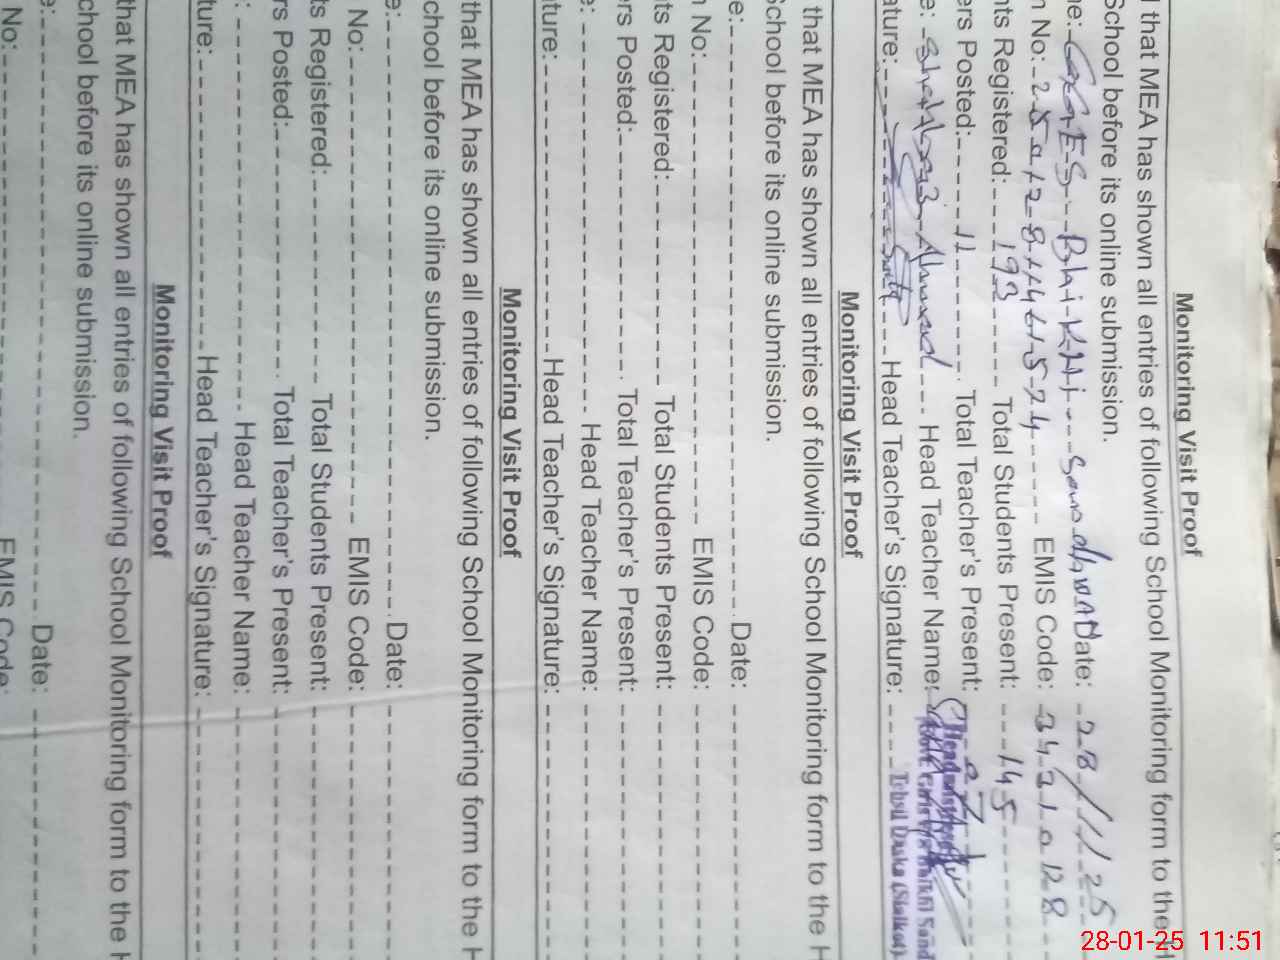 Monitoring Visit Proof
that MEA has shown all entries of following School Monitoring form to the H
School before its online submission.
e: GGES Bhi KHi Date: 28/1/25
No: EMIS Code: 34210128
nts Registered: 193 Total Students Present: 145
ers Posted: 11 Total Teacher's Present: 07
e: Ahmed Head Teacher Name:
ature: Head Teacher's Signature:
Tehsil Daska (Sialkot)
Monitoring Visit Proof
that MEA has shown all entries of following School Monitoring form to the H
School before its online submission.
e: Date:
No: EMIS Code:
ts Registered: Total Students Present:
ers Posted: Total Teacher's Present:
e: Head Teacher Name:
ature: Head Teacher's Signature:
Monitoring Visit Proof
that MEA has shown all entries of following School Monitoring form to the H
chool before its online submission.
e: Date:
No: EMIS Code:
ts Registered: Total Students Present:
rs Posted: Total Teacher's Present:
: Head Teacher Name:
ture: Head Teacher's Signature:
Monitoring Visit Proof
that MEA has shown all entries of following School Monitoring form to the H
chool before its online submission.
e: Date:
No: EMIS Code:
28-01-25 11:51